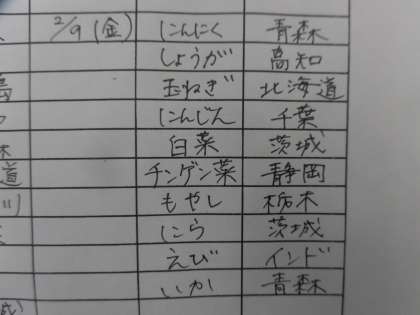 2/9(金) にんにく 青森
しょうが 高知
玉ねぎ 北海道
にんじん 千葉
白菜 茨城
道 チンゲン菜 静岡
もやし 栃木
にら 茨城
えび インド
いか 青森